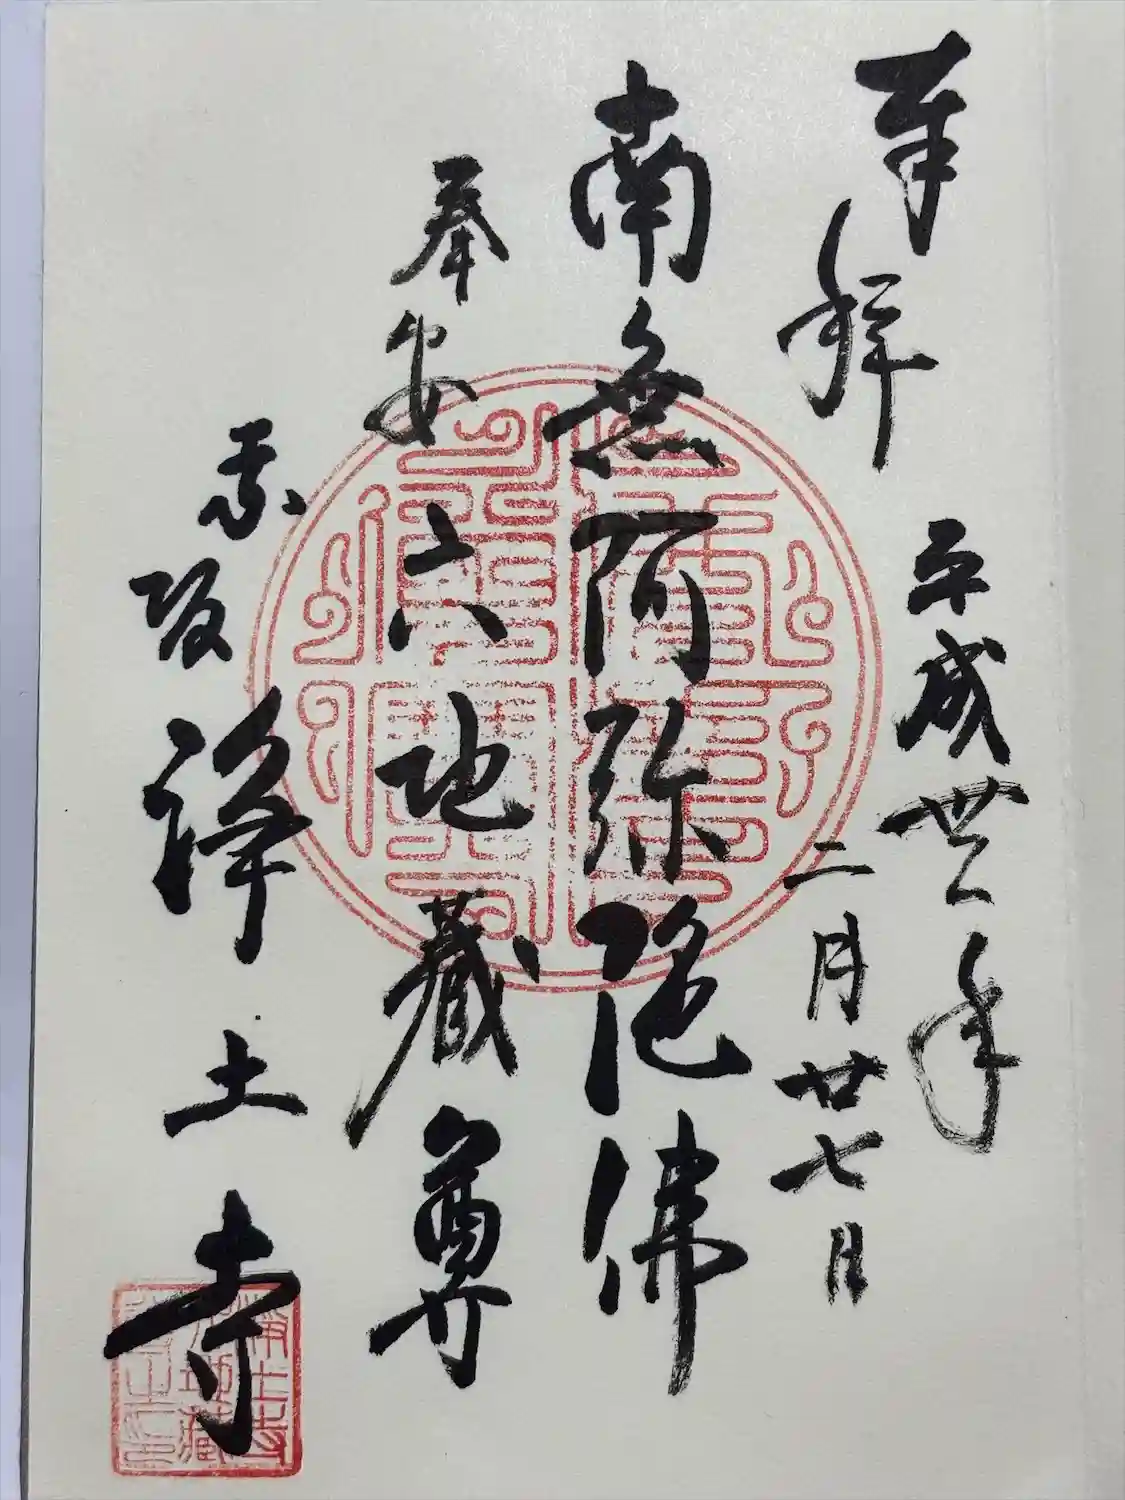 奉拝
平成丗一年
二月廿七日
南無阿弥陀佛
奉安六地藏尊
赤坂
淨土寺